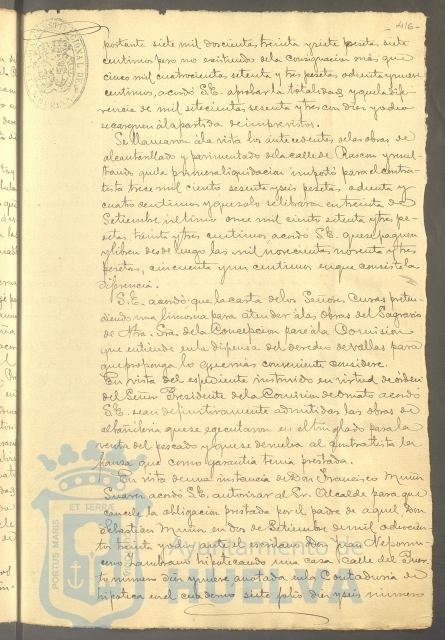 416-
portante siete mil doscientas treinta y siete pesetas, siete
centimos pero no existiendo de la consignacion más que
cinco mil cuatrocientas setenta y tres pesetas ochenta y nueve
centimos, acordó S.E. aprobar la totalidad y que la dife-
rencia de mil setecientas sesenta y tres con diez y ocho
se carguen á la partida de imprevistos.
Se llamaron á la vista los antecedentes de las obras de
alcantarillado y pavimentado de la calle de Rascon y resul-
tando que la primera liquidacion importó para el contra-
tista trece mil ciento sesenta y seis pesetas ochenta y
cuatro centimos y que solo se libraron en treinta de
Setiembre último once mil ciento setenta y tres pe-
setas, treinta y tres centimos acordó S.E. que se paguen
y libren desde luego las mil novecientas noventa y tres
pesetas, cincuenta y un centimos en que consiste la
diferencia.
S.E. acordó que la carta de los Señores Curas preten-
diendo una limosna para atender á las obras del Sagrario
de Ntra. Sra. de la Concepcion pase á la Comision
que entiende en la dispensa del derecho de vallas para
que proponga lo que más conveniente considere.
En vista del espediente instruido en virtud de orden
del Señor Presidente de la Comision de Ornato acordó
S.E. sean definitivamente admitidas las obras de
albañileria que se ejecutaron en el tinglado para la
venta del pescado y que se devuelva al contratista la
fianza que como garantia tenia prestada.
En vista de una instancia de Don Francisco Muñiz
acordó S.E. autorizar al Sr. Alcalde para que
cancele la obligacion prestada por el padre de aquel, Don
Sebastian Muñiz en dos de Setiembre de mil ochocien-
tos treinta y ocho ante el escribano Don Juan Nepomu-
ceno Zambrano hipotecando una casa Calle del Puer-
to numero diez y nueve anotada en la Contaduria de
hipotecas en el cuaderno siete folio diez y seis numero
PORTUS MARIS ET TERRAE CUSTODIA
Ayuntamiento de
HUELVA